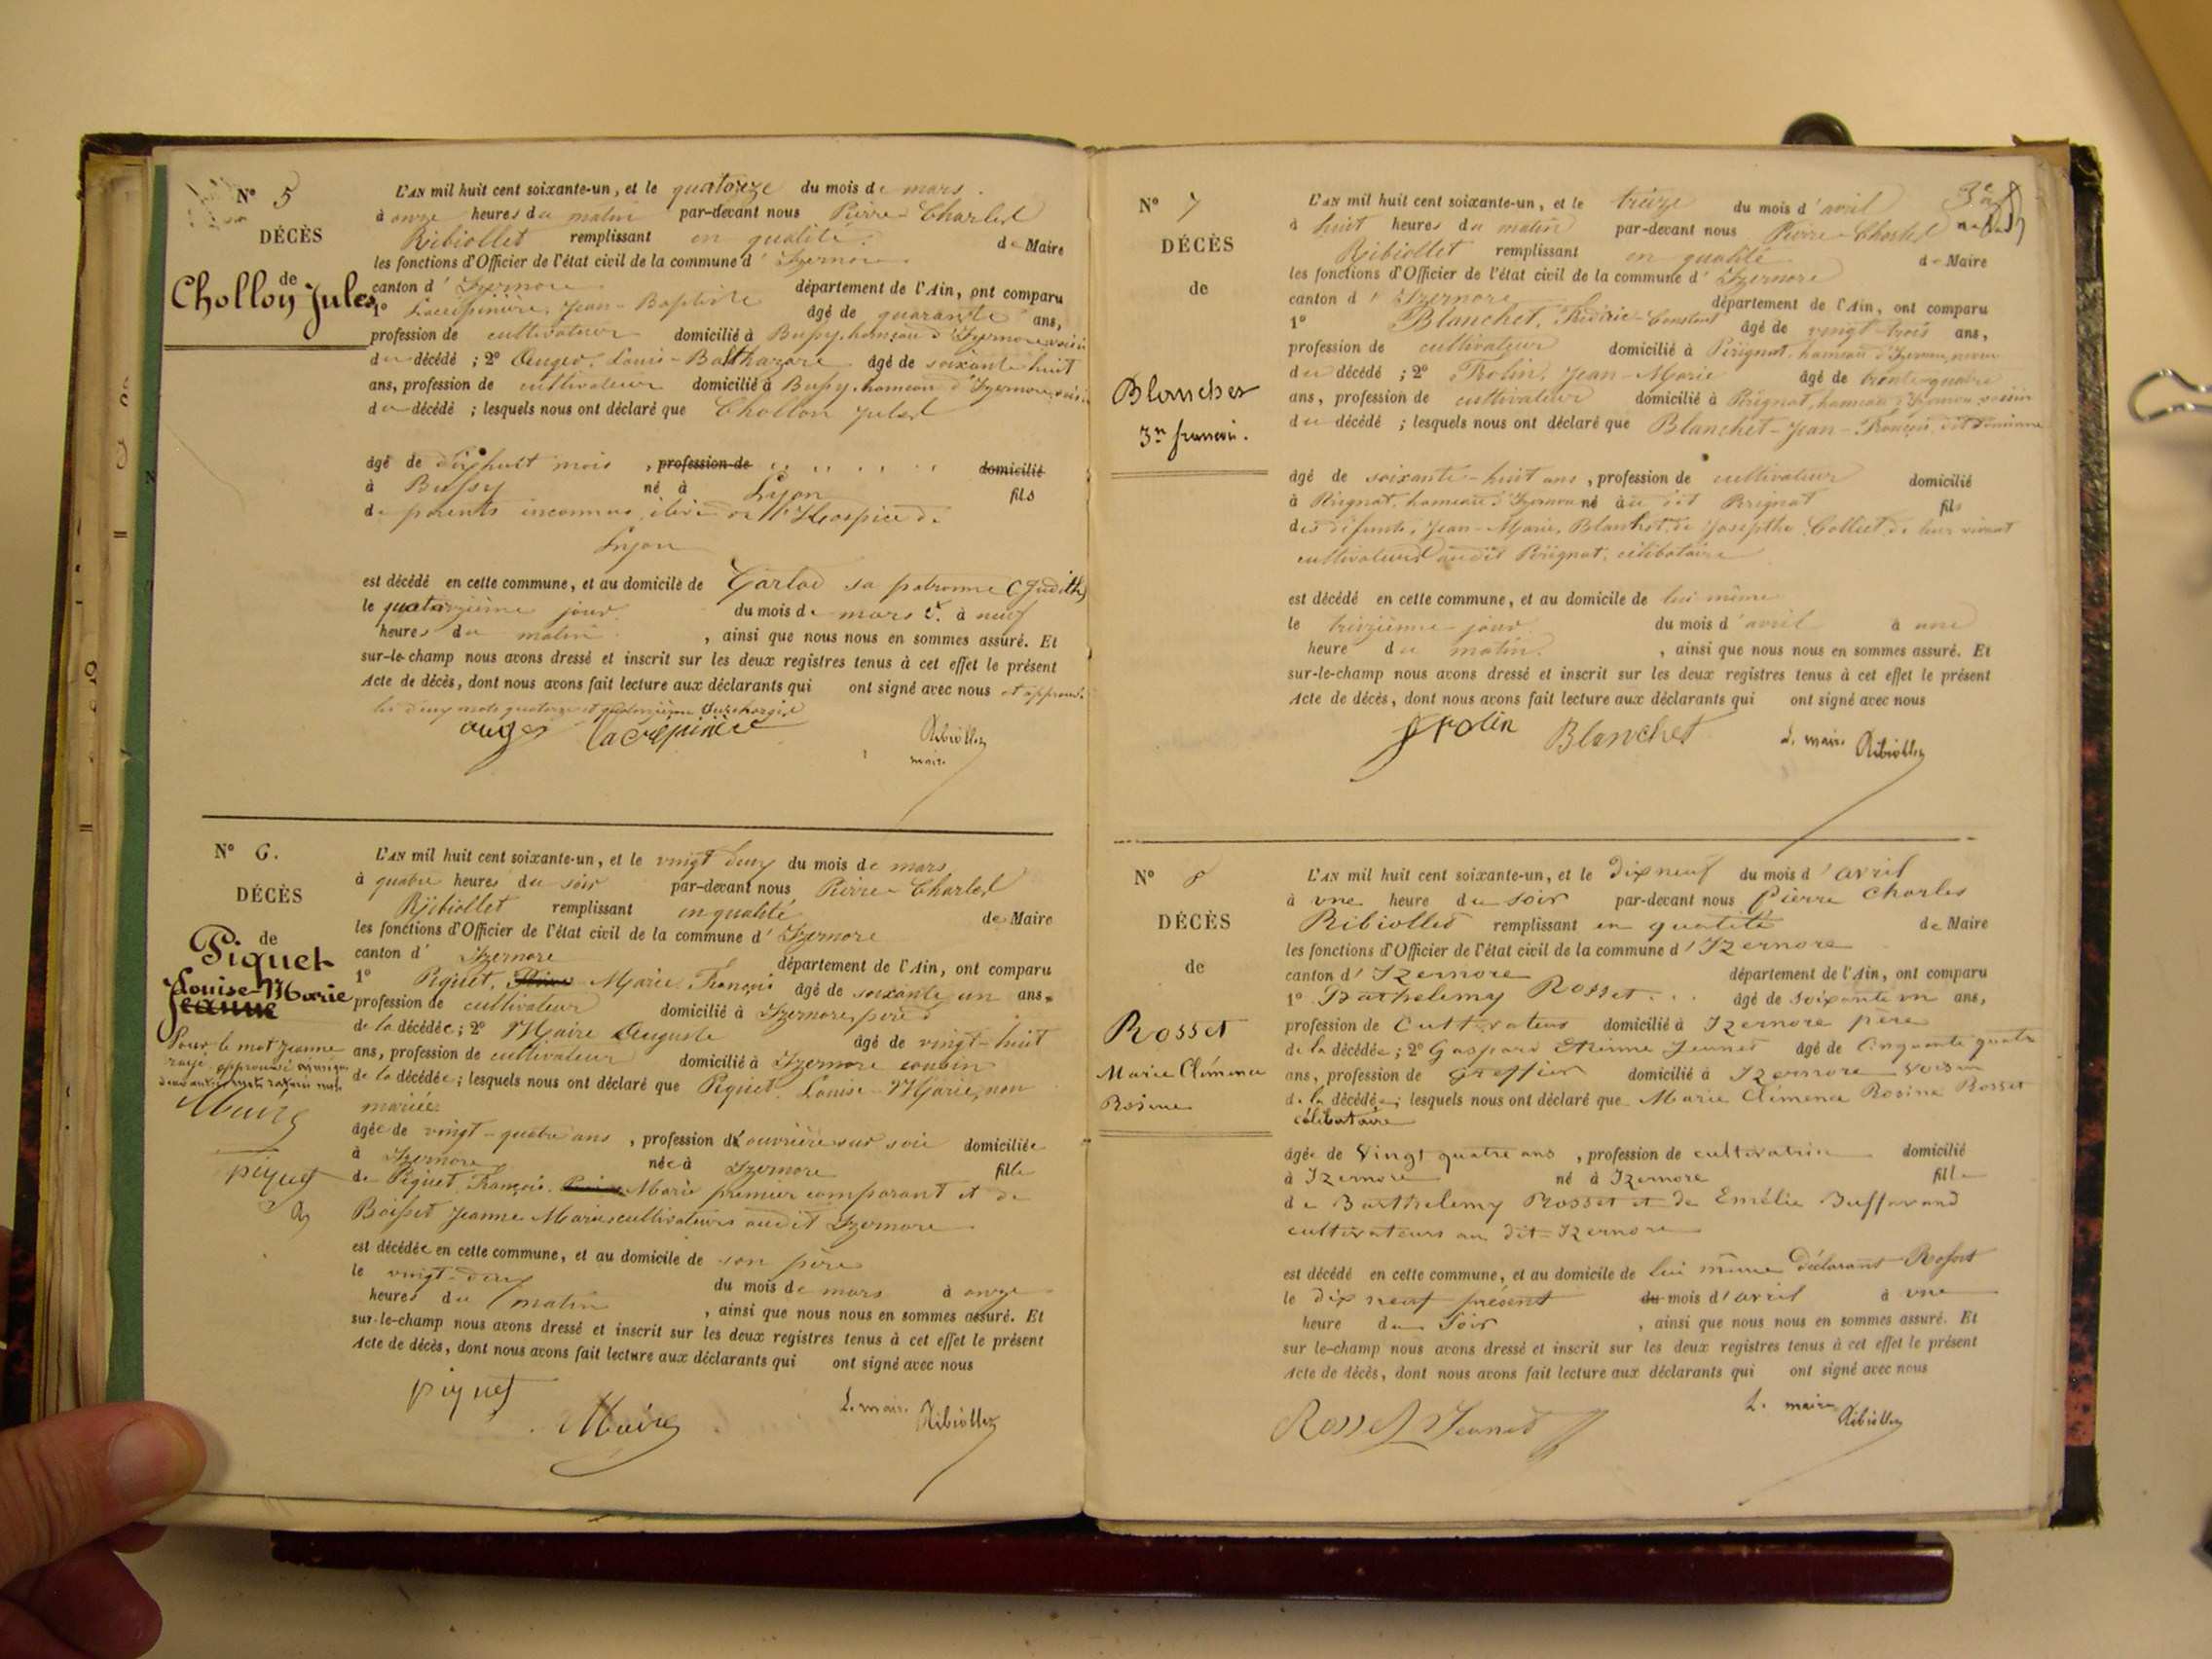 N° 5
DÉCÈS
de
Chollon Jules
L'AN mil huit cent soixante-un, et le quatorze du mois de mars
à onze heures du matin par-devant nous Pierre-Charles
Ribiollet remplissant en qualité de Maire
les fonctions d'Officier de l'état civil de la commune d'Izernore
canton d'Izernore département de l'Ain, ont comparu
1° Lacrépinière, Jean-Baptiste âgé de quarante ans,
profession de cultivateur domicilié à Bussy, hameau d'Izernore voisin
du décédé ; 2° Auger, Louis-Balthazare âgé de soixante huit
ans, profession de cultivateur domicilié à Bussy, hameau d'Izernore, voisin
du décédé ; lesquels nous ont déclaré que Chollon Jules
âgé de dix huit mois , profession de domicilié
à Bussy né à Lyon fils
de parents inconnus, élève de l'Hospice de
Lyon
est décédé en cette commune, et au domicile de sa patronne (Judith)
le quatorzième jour du mois de mars à neuf
heures du matin , ainsi que nous nous en sommes assuré. Et
sur-le-champ nous avons dressé et inscrit sur les deux registres tenus à cet effet le présent
Acte de décès, dont nous avons fait lecture aux déclarants qui ont signé avec nous et approuvé
les deux mots quatorze et quatorzième surchargés
auger Lacrépinière Ribiollet
maire
N° 6.
DÉCÈS
de
Piquet
Louise-Marie
Jeanne
Pour le mot Jeanne
rayé approuvé
Maire
piquet
L'AN mil huit cent soixante-un, et le vingt deux du mois de mars
à quatre heures du soir par-devant nous Pierre-Charles
Ribiollet remplissant en qualité de Maire
les fonctions d'Officier de l'état civil de la commune d'Izernore
canton d'Izernore département de l'Ain, ont comparu
1° Piquet, Marie François âgé de soixante un ans,
profession de cultivateur domicilié à Izernore, père
de la décédée ; 2° Maire Auguste âgé de vingt-huit
ans, profession de cultivateur domicilié à Izernore cousin
de la décédée ; lesquels nous ont déclaré que Piquet Louise-Marie, non
mariée
âgée de vingt-quatre ans , profession d'ouvrière sur soie domiciliée
à Izernore née à Izernore fille
de Piquet, François, Marie premier comparant et de
Boisset Jeanne Marie cultivateurs audit Izernore
est décédée en cette commune, et au domicile de son père
le vingt-deux du mois de mars à onze
heures du matin , ainsi que nous nous en sommes assuré. Et
sur-le-champ nous avons dressé et inscrit sur les deux registres tenus à cet effet le présent
Acte de décès, dont nous avons fait lecture aux déclarants qui ont signé avec nous
piquet Maire Le maire Ribiollet
N° 7
DÉCÈS
de
Blanchet
Jn françois.
L'AN mil huit cent soixante-un, et le treize du mois d'avril
à huit heures du matin par-devant nous Pierre-Charles
Ribiollet remplissant en qualité de Maire
les fonctions d'Officier de l'état civil de la commune d'Izernore
canton d'Izernore département de l'Ain, ont comparu
1° Blanchet, Frédéric-Constant âgé de vingt-trois ans,
profession de cultivateur domicilié à Pérignat, hameau d'Izernore, neveu
du décédé ; 2° Frolin, Jean-Marie âgé de trente-quatre
ans, profession de cultivateur domicilié à Pérignat, hameau d'Izernore voisin
du décédé ; lesquels nous ont déclaré que Blanchet-Jean-François dit
âgé de soixante-huit ans , profession de cultivateur domicilié
à Pérignat, hameau d'Izernore né au dit Pérignat fils
des défunts, Jean-Marie, Blanchet, de Josephte Collet de leur vivant
cultivateurs audit Pérignat, célibataire
est décédé en cette commune, et au domicile de lui même
le treizième jour du mois d'avril à une
heure du matin. , ainsi que nous nous en sommes assuré. Et
sur-le-champ nous avons dressé et inscrit sur les deux registres tenus à cet effet le présent
Acte de décès, dont nous avons fait lecture aux déclarants qui ont signé avec nous
frolin Blanchet Le maire Ribiollet
N° 8
DÉCÈS
de
Rosset
Marie Clémence
Rosine
L'AN mil huit cent soixante-un, et le Dix neuf du mois d'avril
à une heure du soir par-devant nous Pierre Charles
Ribiollet remplissant en qualité de Maire
les fonctions d'Officier de l'état civil de la commune d'Izernore
canton d'Izernore département de l'Ain, ont comparu
1° Barthelemy Rosset . . âgé de soixante un ans,
profession de Cultivateur domicilié à Izernore père
de la décédée ; 2° Gaspard Etienne Jeunet âgé de Cinquante quatre
ans, profession de Greffier domicilié à Izernore Voisin
de la décédée ; lesquels nous ont déclaré que Marie Clémence Rosine Rosset
célibataire
âgée de Vingt quatre ans , profession de cultivatrice domicilié
à Izernore né à Izernore fille
de Barthelemy Rosset et de Emélie Buffavand
cultivateurs au dit Izernore
est décédé en cette commune, et au domicile de lui même Déclarant Rosset
le dix neuf présent du mois d'avril à une
heure du Soir , ainsi que nous nous en sommes assuré. Et
sur le-champ nous avons dressé et inscrit sur les deux registres tenus à cet effet le présent
Acte de décès, dont nous avons fait lecture aux déclarants qui ont signé avec nous
Rosset Jeunet Le maire Ribiollet